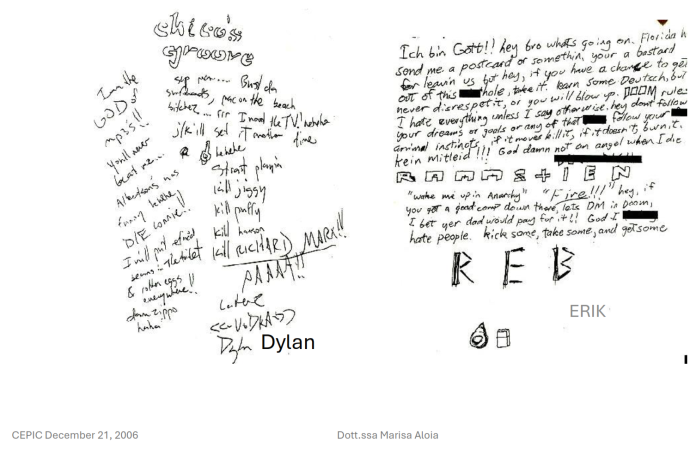 chico's
groove
I'm the
GOD of
mp3's!!
You'll never
beat me...
Albertsons was
funny hehehe
DIE
I will put
in the toilet
& rotten eggs
everywhere!!
damn zippo
haha
sup man.... Bust dem
surfboards, pac on the beach
bitchez...
j/k ill set it another time
hehehe
Strait pimpin
kill jiggy
kill puffy
kill hanson
kill RICHARD MARX!!
PAAAT!!
Later
<<-VoDkA->>
Dylan
Dylan
Ich bin Gott!! hey bro whats going on. Florida h
send me a postcard or somethin, your a bastard
for leavin us but hey, if you have a chance to get
out of this hole, take it. learn some Deutsch, but
never disrespect it, or you will blow up. DOOM rules
I hate everything unless I say otherwise. hey dont follow
your dreams or goals or any of that follow your
animal instincts, if it moves kill it, if it doesn't, burn it.
kein mitleid!!! God damn not an angel when I die
RAMMSTIEN
"wake me up in Anarchy" "Fire!!!" hey, if
you got a good comp down there, lets DM in Doom,
I bet yer dad would pay for it!! God I
hate people. kick some, take some, and get some
REB
ERIK
CEPIC December 21, 2006
Dott.ssa Marisa Aloia